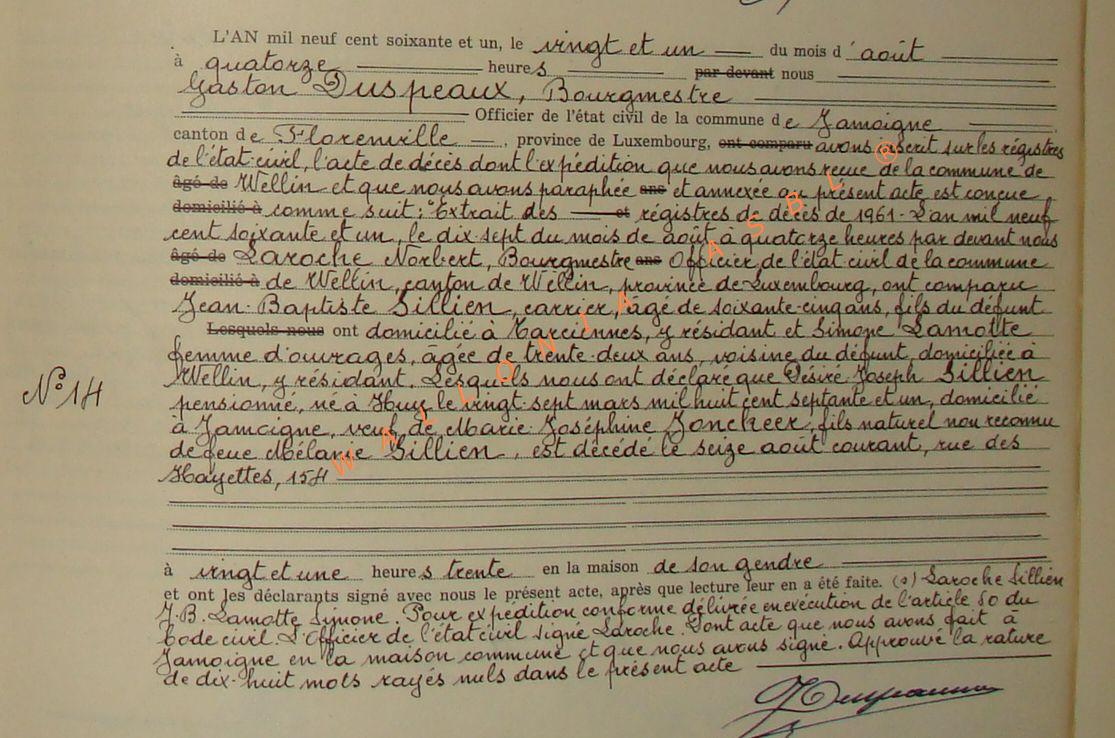 L'AN mil neuf cent soixante et un, le vingt et un du mois d'août
à quatorze heures par devant nous
Gaston Duspeaux, Bourgmestre
Officier de l'état civil de la commune de Jamoigne
canton de Florenville, province de Luxembourg, ont comparu avons inscrit sur les régistres
de l'état-civil, l'acte de décès dont l'expédition que nous avons reçue de la commune de
âgé de Wellin et que nous avons paraphée ans et annexée au présent acte est conçue
domicilié à comme suit: "Extrait des et régistres de décès de 1961 - L'an mil neuf
cent soixante et un, le dix-sept du mois de août à quatorze heures par devant nous
âgé de Laroche Norbert, Bourgmestre ans Officier de l'état-civil de la commune
domicilié à de Wellin, canton de Wellin, province de Luxembourg, ont comparu
Jean-Baptiste Sillien, carrier, âgé de soixante-cinq ans, fils du défunt
Lesquels nous ont domicilié à Tarciennes, y résidant et Simone Lamotte
femme d'ouvrages, âgée de trente-deux ans, voisine du défunt, domiciliée à
Wellin, y résidant. Lesquels nous ont déclaré que Désiré-Joseph Sillien
N° 14
pensionné, né à Huy le vingt-sept mars mil huit cent septante et un, domicilié
à Jamoigne, veuf de Marie-Joséphine Joncheer, fils naturel non reconnu
de feue Mélanie Sillien, est décédé le seize août courant, rue des
Hayettes, 154
à vingt et une heures trente en la maison de son gendre
et ont les déclarants signé avec nous le présent acte, après que lecture leur en a été faite. (s) Laroche Sillien
J.B. Lamotte Simone. Pour expédition conforme délivrée en exécution de l'article 80 du
Code civil. L'Officier de l'état civil signé Laroche. Dont acte que nous avons fait à
Jamoigne en la maison commune et que nous avons signé. Approuvé la rature
de dix-huit mots rayés nuls dans le présent acte
WALLONIA ASBL ®